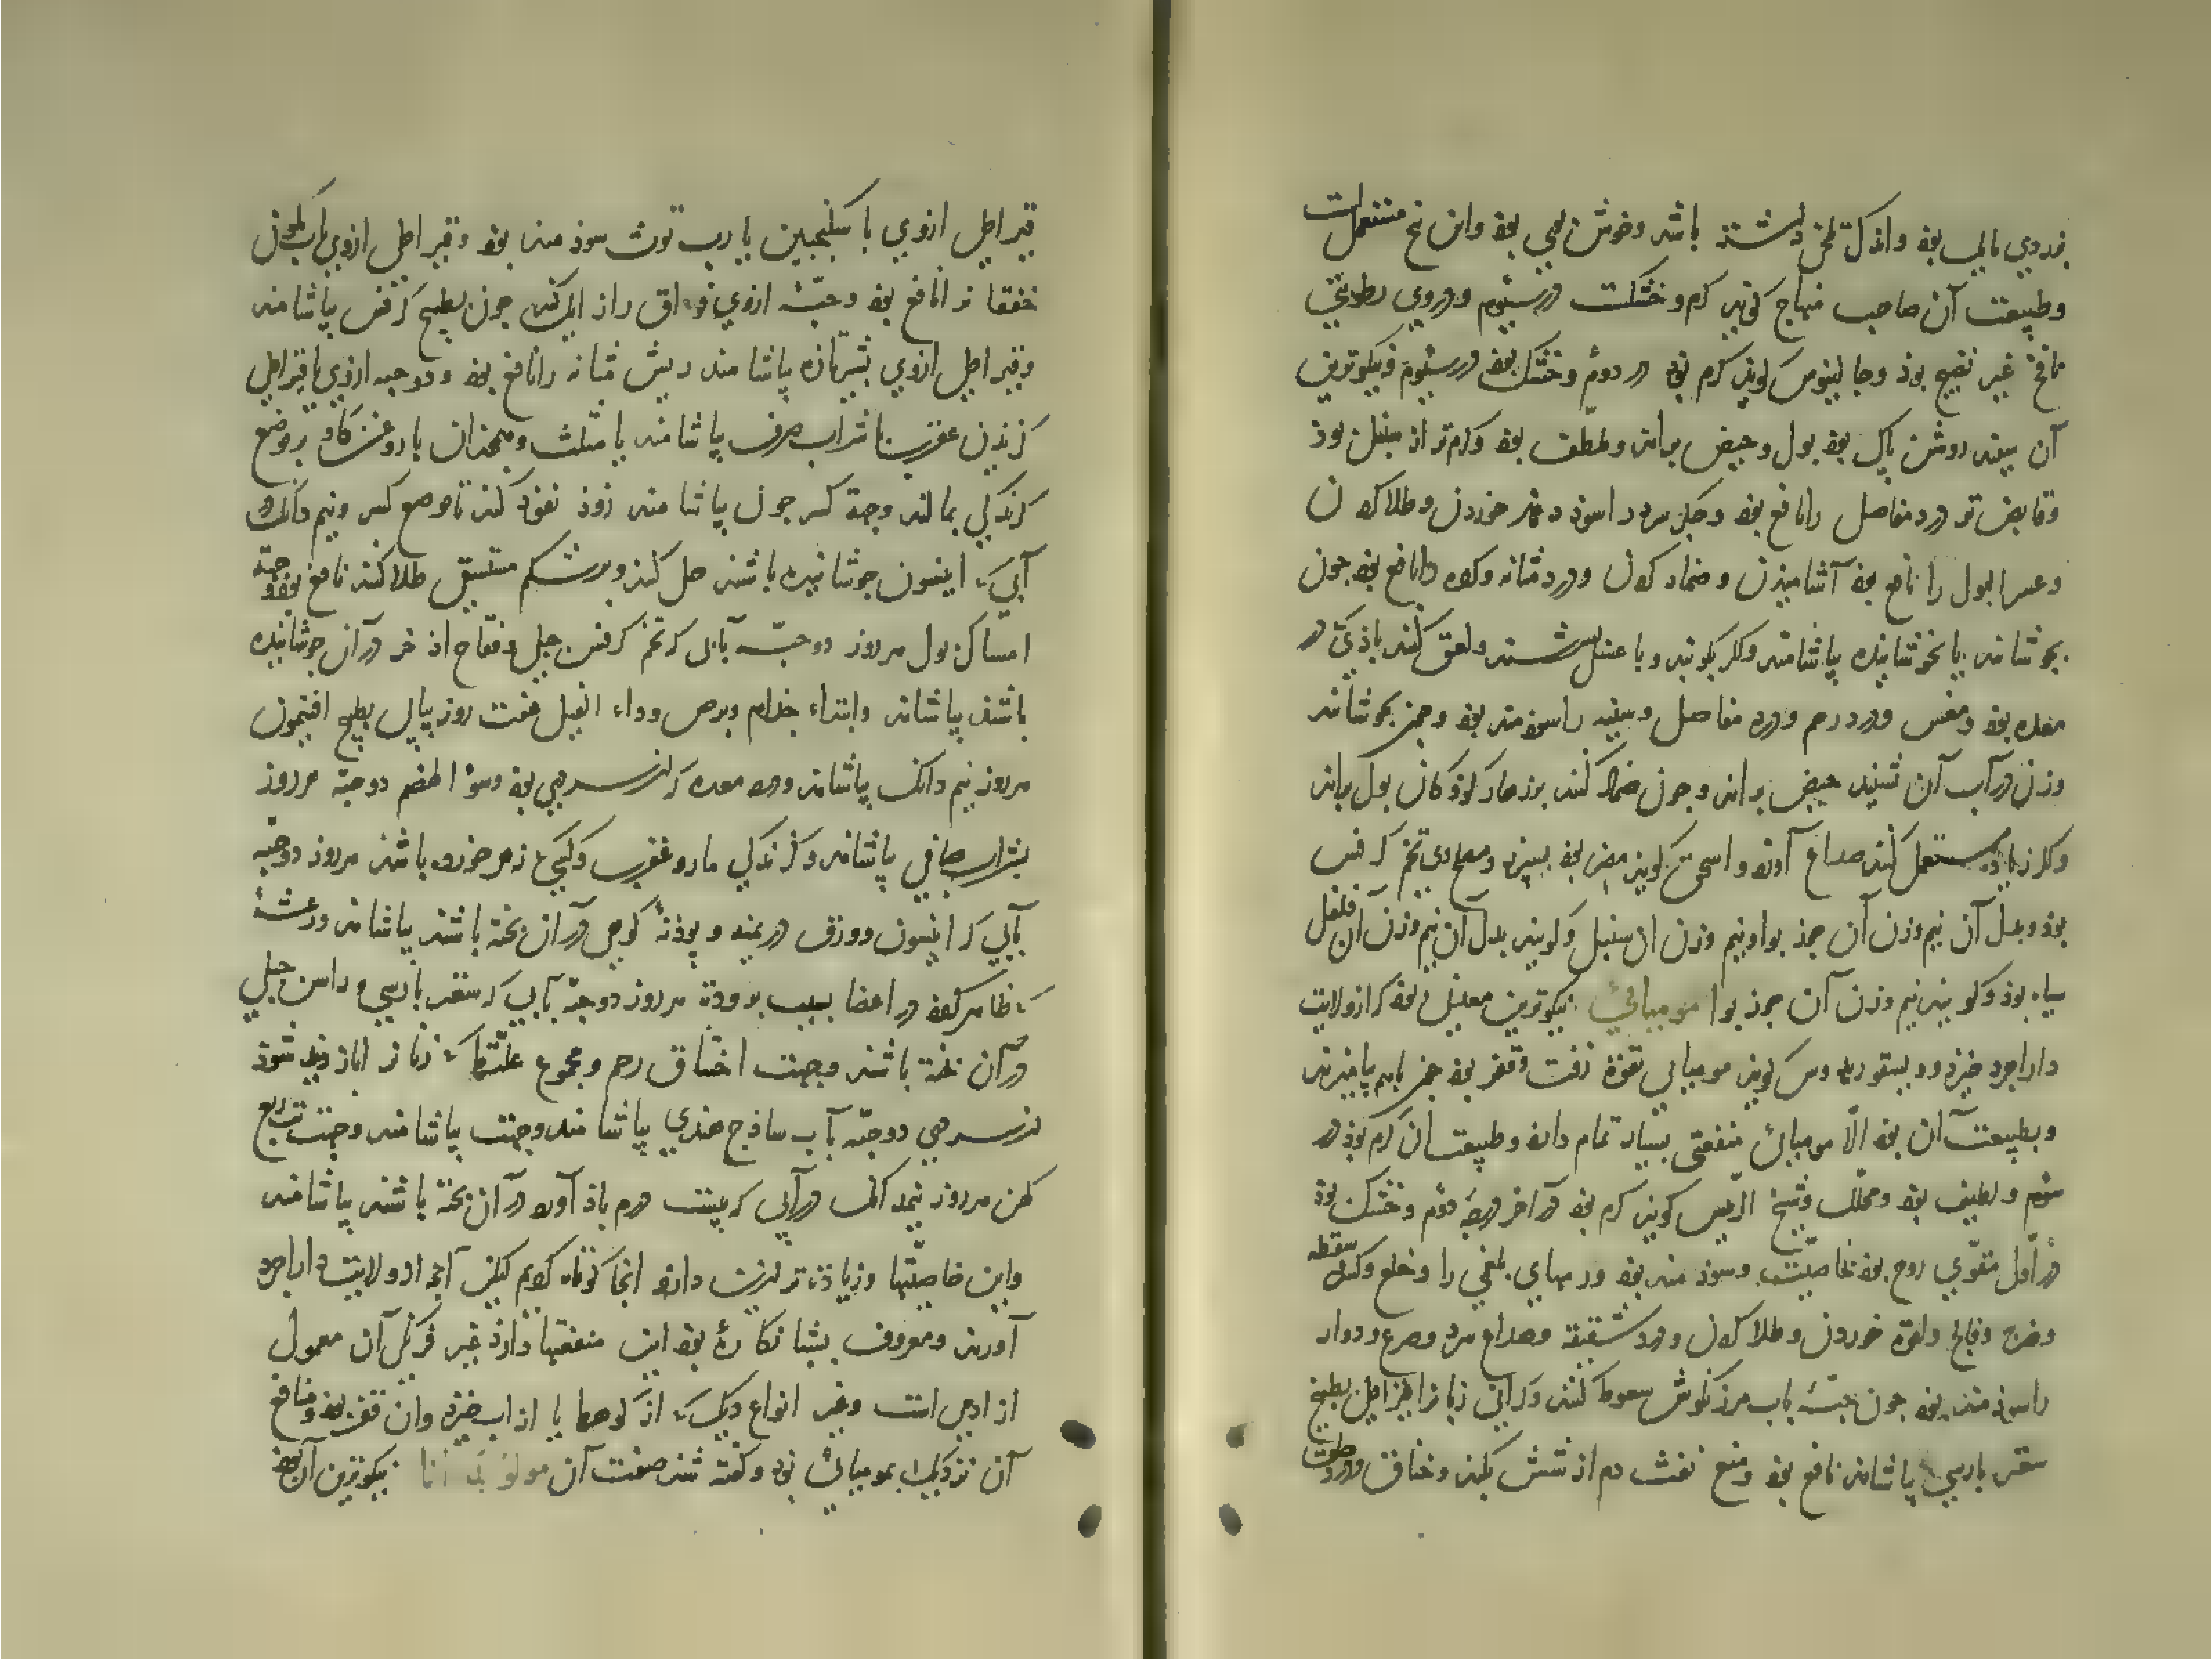 بزردی مایل بود واندک تلخی داشته باشد وخوش بوی بود واین بیخ مستعمل است
وطبیعت آن صاحب منهاج گوید گرم و خشکست در سیوم ودروی رطوبتی
نافخ غیر نضیج بود وجالینوس گوید گرم بود در دوم وخشک بود در سیوم ونیکوترین
آن سپید روشن پاک بود بول وحیض براند وملطف بود وگرم تر از سنبل بود
وقابض تر درد مفاصل را نافع بود وجگر سرد را سود دهد خوردن وطلا کردن
وعسر البول را نافع بود آشامیدن وضماد کردن ودرد مثانه وگرده را نافع بود چون
بجوشانند یا نجوشانیده بیاشامند واگر بکوبند وبا عسل بسرشند ولعق کنند بادی که در
معده بود ومغص ودرد رحم ودرد مفاصل وسینه را سودمند بود وچون بجوشانند
وزن در آب آن نشیند حیض براند وچون ضماد کنند بر زهار کودکان بول براند
واگر زیاده مستعمل کنند صداع آورد واسحق گوید مضر بود بسپرز ومصلح وی تخم کرفس
بود وبدل آن نیم وزن آن جوز بوا ونیم وزن آن سنبل وگویند بدل آن نیم وزن آن فلفل
سیاه بود وگویند نیم وزن آن جوز بوا مومیائی نیکوترین معدنی بود که از ولایت
دارابجرد خیزد ودیسقوریدوس گوید مومیایی بقوة زفت وقفر بود چون باهم بیامیزند
وبطبیعت آن بود الّا مومیائی منفعتی بسیار تمام دارد وطبیعت آن گرم بود در
سوم ولطیف بود ومحلل وشیخ الرئیس گوید گرم بود در آخر درجۀ دوم وخشک بود
در اول مقوی روح بود بخاصیت وسودمند بود ورمهای بلغمی را وخلع وکسر وسقطه
وضرب وفالج ولقوه خوردن وطلا کردن ودرد شقیقه وصداع سرد وصرع ودوار
را سودمند بود چون حبّۀ باب مرزنگوش سعوط کنند وگرانی زبان را قیراطی بطبیخ
سعتر پارسی بیاشامند نافع بود ومنع نفث دم از شش بکند وخناق ودرد حلق
قیراطی ازوی با سکنجبین یا رب توث سودمند بود وقیراطی ازوی باب
خفقان را نافع بود وحبّۀ ازوی فواق را زایل کند چون بطبیخ کرفس بیاشامند
وقیراطی ازوی بشیر تازه بیاشامند ریش مثانه را نافع بود ودو حبه ازوی تا قیراطی
گزیدن عقرب با شراب صرف بیاشامند یا مثلث وهمچنان با روغن گاو بر موضع
گزندگی بمالند وجهة کسر چون بیاشامند زود نفوذ کند تا موضع کسر ونیم دانک در
آبی که انیسون جوشانیده باشند حل کنند وبر شکم مستسقی طلا کنند نافع بود وجهة
امساک بول هر روز دو حبّه بآبی که تخم کرفس جبلی وفقاح اذخر در آن جوشانیده
باشند بیاشامند وابتداء جذام وبرص وداء الفیل هفت روز پیاپی بطبیخ افتیمون
هر روز نیم دانک بیاشامند ودرد معده که از سردی بود وسوء الهضم دو حبّه هر روز
بشراب صافی بیاشامند وگزندگی مار وعقرب وکسی که زهر خورده باشد هر روز دو حبّه
بآبی که انیسون وورق دریمنه وپودنۀ کوهی در آن پخته باشند بیاشامند ورعشۀ
که ظاهر گردد در اعضا بسبب برودة هر روز دو حبّه بآبی که سعتر پارسی وراسن جبلی
در آن پخته باشند وجهت اختناق رحم ومجموع علتها که زنان را پدید شود
از سردی دو حبّه بآب ساذج هندی بیاشامند وجهت تب ربع
کهن هر روز نیمدانک در آبی که بیست درم باذآورد در آن پخته باشند بیاشامند
واین خاصیتها وزیاده تر ازین دارد اینجا کوتاه کردیم لیکن آنچه از ولایت دارابجرد
آورند ومعروف بشبانکاره بود این منفعتها دارد غیر فرنگی آن معمول
از آدمی است وغیر انواع دیگر که از کوهها یا از آب خیزد وآن قفر بود ومنافع
آن نزدیک بمومیائی بود وگفته شد صفت آن نیکوترین آن بود